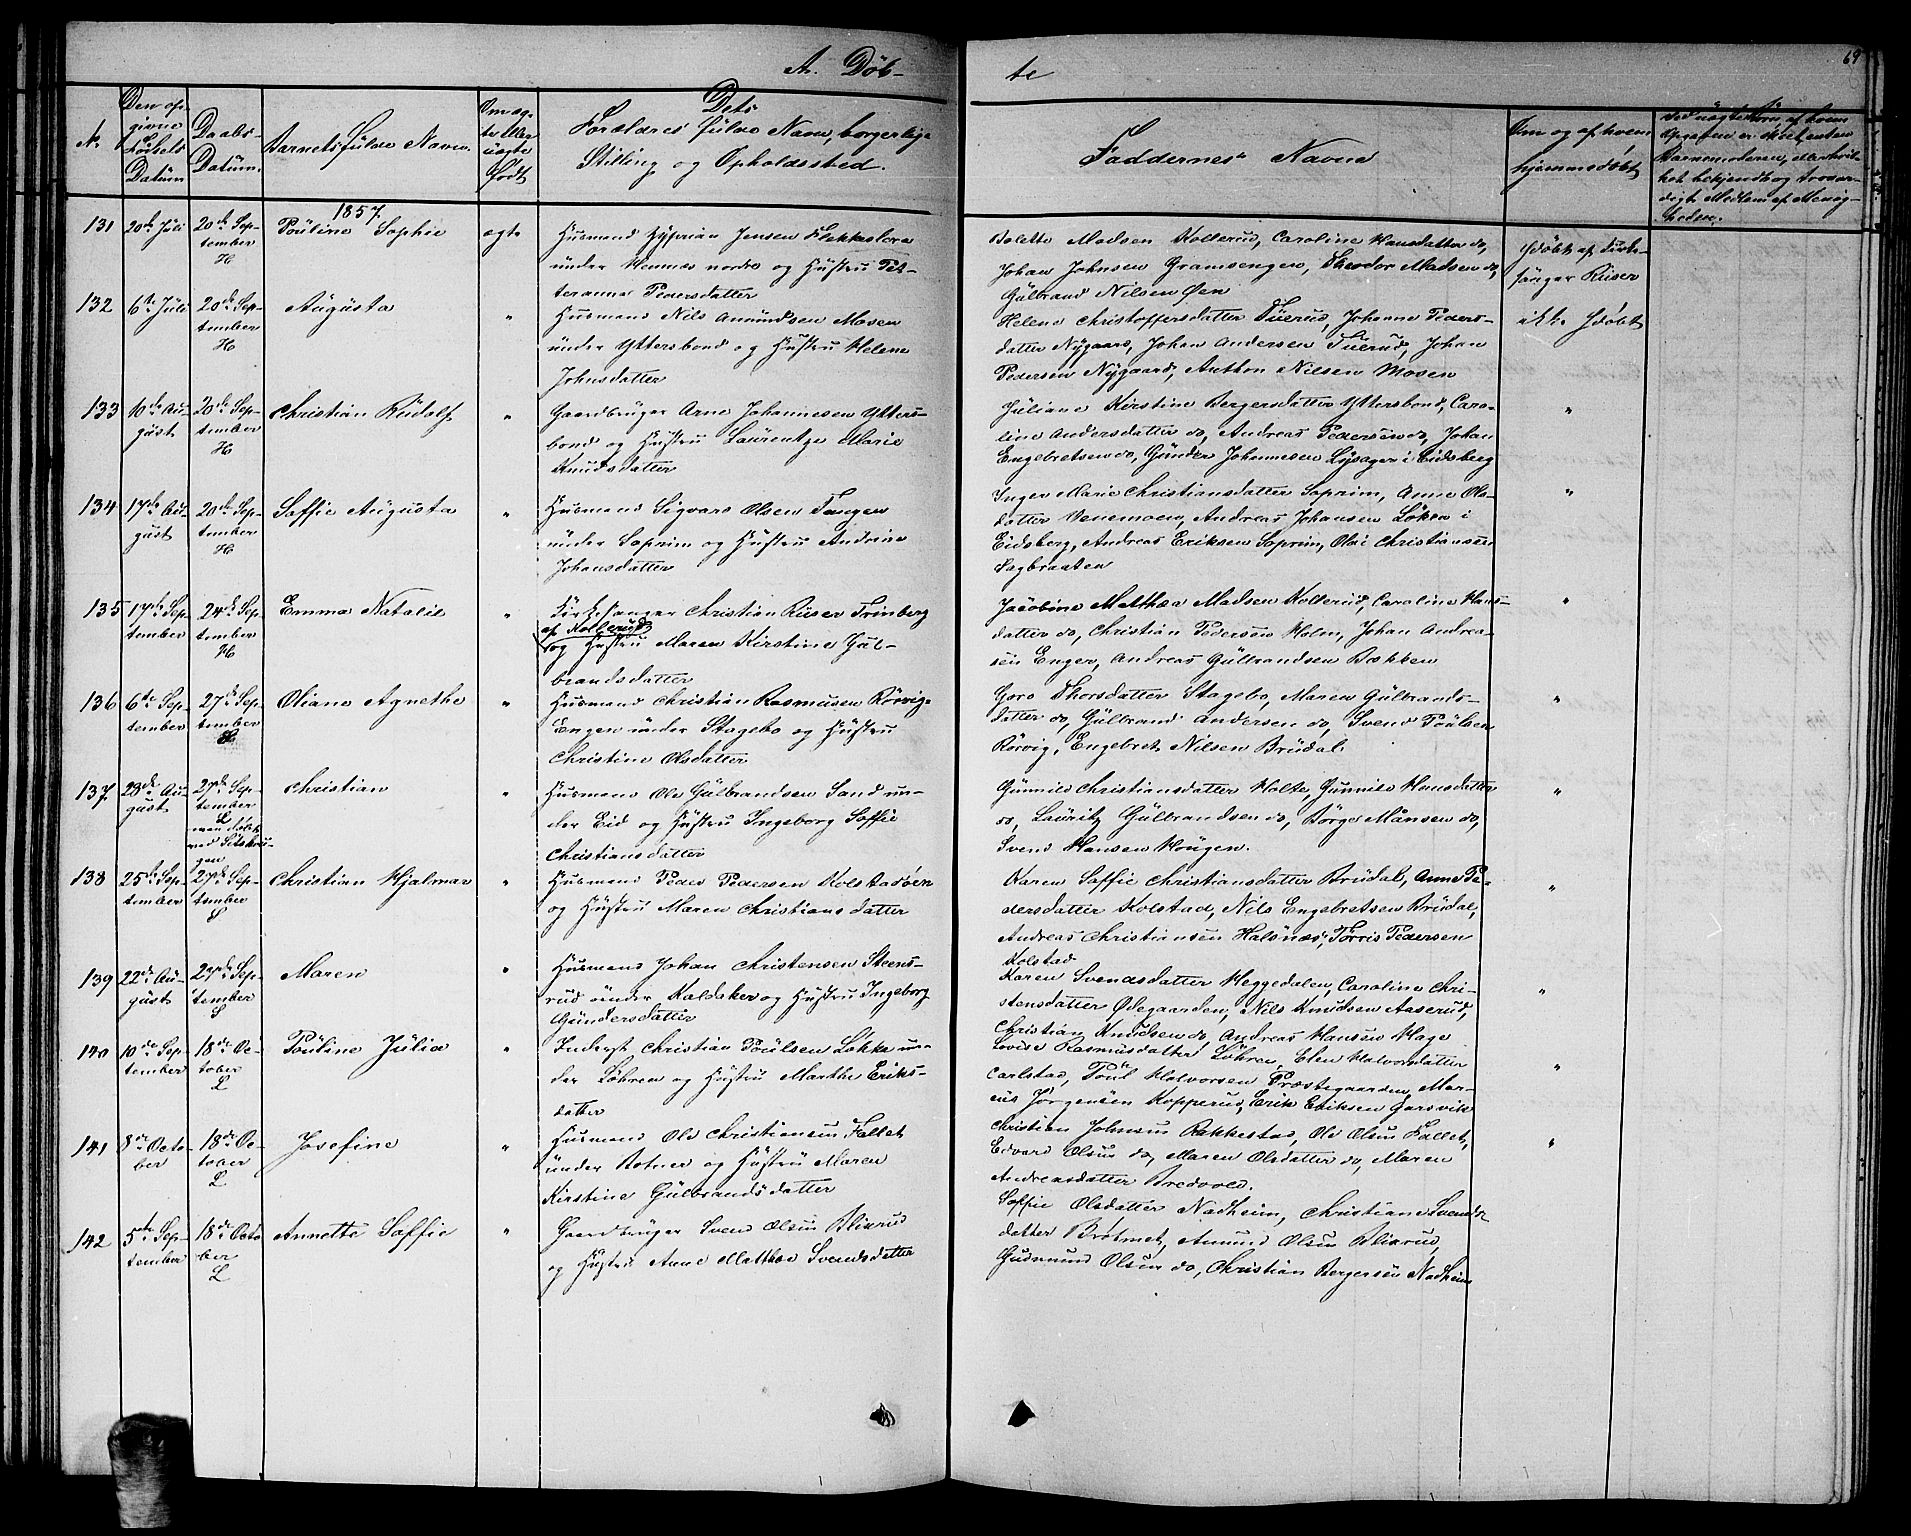 A. Døb-
te
69
No
Den op-
givne
Fødsels
Datum
Daabs-
Datum.
Barnets fulde Navn.
Om æg-
te eller
uægte
født
Dets
Forældres fulde Navn, borgerlige
Stilling og Opholdssted.
Faddernes Navne
Om og af hvem
hjemmedøbt
1857.
131 20de Juli 20de Sep-
tember
H
Pouline Sophie
ægte
Husmand Cyprian Jensen Flekkeslora
under Hemnæs nordre og Hustru Pet-
teranna Pedersdatter
Bolette Madsen Kollerud, Caroline Hansdatter do,
Johan Johnsen Gramsengen, Theodor Madsen do,
Gulbrand Nilsen Øen
hdøbt af Kirke-
sanger Ruser
132 6te Juli 20de Sep-
tember
H
Augusta
"
Husmand Nils Amundsen Mosen
under Yttersbond og Hustru Helene
Johnsdatter
Helene Christoffersdatter Tuerud, Johanne Peders-
datter Nygaard, Johan Andersen Tuerud, Johan
Pedersen Nygaard, Anthon Nilsen Mosen
ikke hdøbt
133 10de Au-
gust
20de Sep-
tember
H
Christian Rudolf
"
Gaardbruger Arne Johannesen Ytters-
bond og Hustru Laurentze Marie
Knudsdatter
Juliane Kirstine Bergersdatter Yttersbond, Caro-
line Andersdatter do, Andreas Pedersen do, Johan
Engebretsen do, Gunder Johannesen Lysager i Eidsberg
"
134 17de Au-
gust
20de Sep-
tember
H
Soffie Augusta
"
Husmand Sigvard Olsen Tangen
under Soprim og Hustru Andrine
Johansdatter
Inger Marie Christiansdatter Soprim, Anne Ols-
datter Venemoen, Andreas Johansen Løken i
Eidsberg, Andreas Eriksen Soprim, Ole Christiansen
Sagbraaten
"
135 17de Sep-
tember
24de Sep-
tember
H
Emma Natalie
"
Kirkesanger Christian Ruser Trinborg
af Kollerud
og Hustru Maren Kirstine Gul-
brandsdatter
Jacobine Matthea Madsen Kollerud, Caroline Hans-
datter do, Christian Pedersen Holm, Johan Andrea-
sen Enger, Andreas Gulbrandsen Bækken
"
136 6te Sep-
tember
27de Sep-
tember
Oliane Agnethe
"
Husmand Christian Rasmusen Rørvig-
Engen under Stagebo og Hustru
Christine Olsdatter
Goro Thorsdatter Stagebo, Maren Gulbrands-
datter do, Gulbrand Andersen do, Svend Poulsen
Rørvig, Engebret Nilsen Brudal
"
137. 28de Au-
gust
27de Sep-
tember
L
Christian
"
Husmand Ole Gulbrandsen Sand un-
der Eid og Hustru Ingeborg Soffie
Christiansdatter
Gunnild Christiansdatter Holte, Gunnild Hansdatter
do, Lauritz Gulbrandsen do, Børge Mansen do,
Svend Hansen Hougen.
"
138 25de Sep-
tember
27de Sep-
tember
L
Christian Hjalmar
"
Husmand Peder Pedersen Kolstadøen
og Hustru Maren Christiansdatter
Karen Soffie Christiansdatter Brudal, Anne Pe-
dersdatter Kolstad, Nils Engebretsen Brudal,
Andreas Christiansen Halsnæs, Torris Pedersen
Kolstad
"
139 22de Au-
gust
27de Sep-
tember
L
Maren
"
Husmand Johan Christensen Steens-
rud under Kaldaker og Hustru Ingeborg
Gundersdatter
Karen Svendsdatter Heggedalen, Caroline Chri-
stensdatter Ødegaarden, Nils Knudsen Aaserud,
Christian Knudsen do, Andreas Hansen Hage
"
140 10de Sep-
tember
18de Oc-
tober
L
Pouline Julia
"
Inderst Christian Poulsen Løkke un-
der Løhren og Hustru Marthe Eriks-
datter
Lovise Rasmusdatter Løhren, Elen Halvorsdatter
Carlstad, Poul Halvorsen Præstegaarden, Mar-
ius Jørgensen Kopperud, Erik Eriksen Garsvik
"
141 8de Octo-
ber
18de Oc-
tober
L
Josefine
"
Husmand Ole Christiansen Fallet
under Botner og Hustru Maren
Kirstine Gulbrandsdatter
Christian Johnsen Rakkestad, Ole Olsen Fallet,
Edvard Olsen do, Maren Olsdatter do, Maren
Andreasdatter Bredvold.
"
142 5te Sep-
tember
18de Octo-
ber
L
Annette Soffie
"
Gaardbruger Svend Olsen Blixrud
og Hustru Anne Matthea Svendsdatter
Soffie Olsdatter Nadheim, Christiane Svends-
datter Brotmet, Amund Olsen Blixrud,
Gudmund Olsen do, Christian Bergersen Nadheim